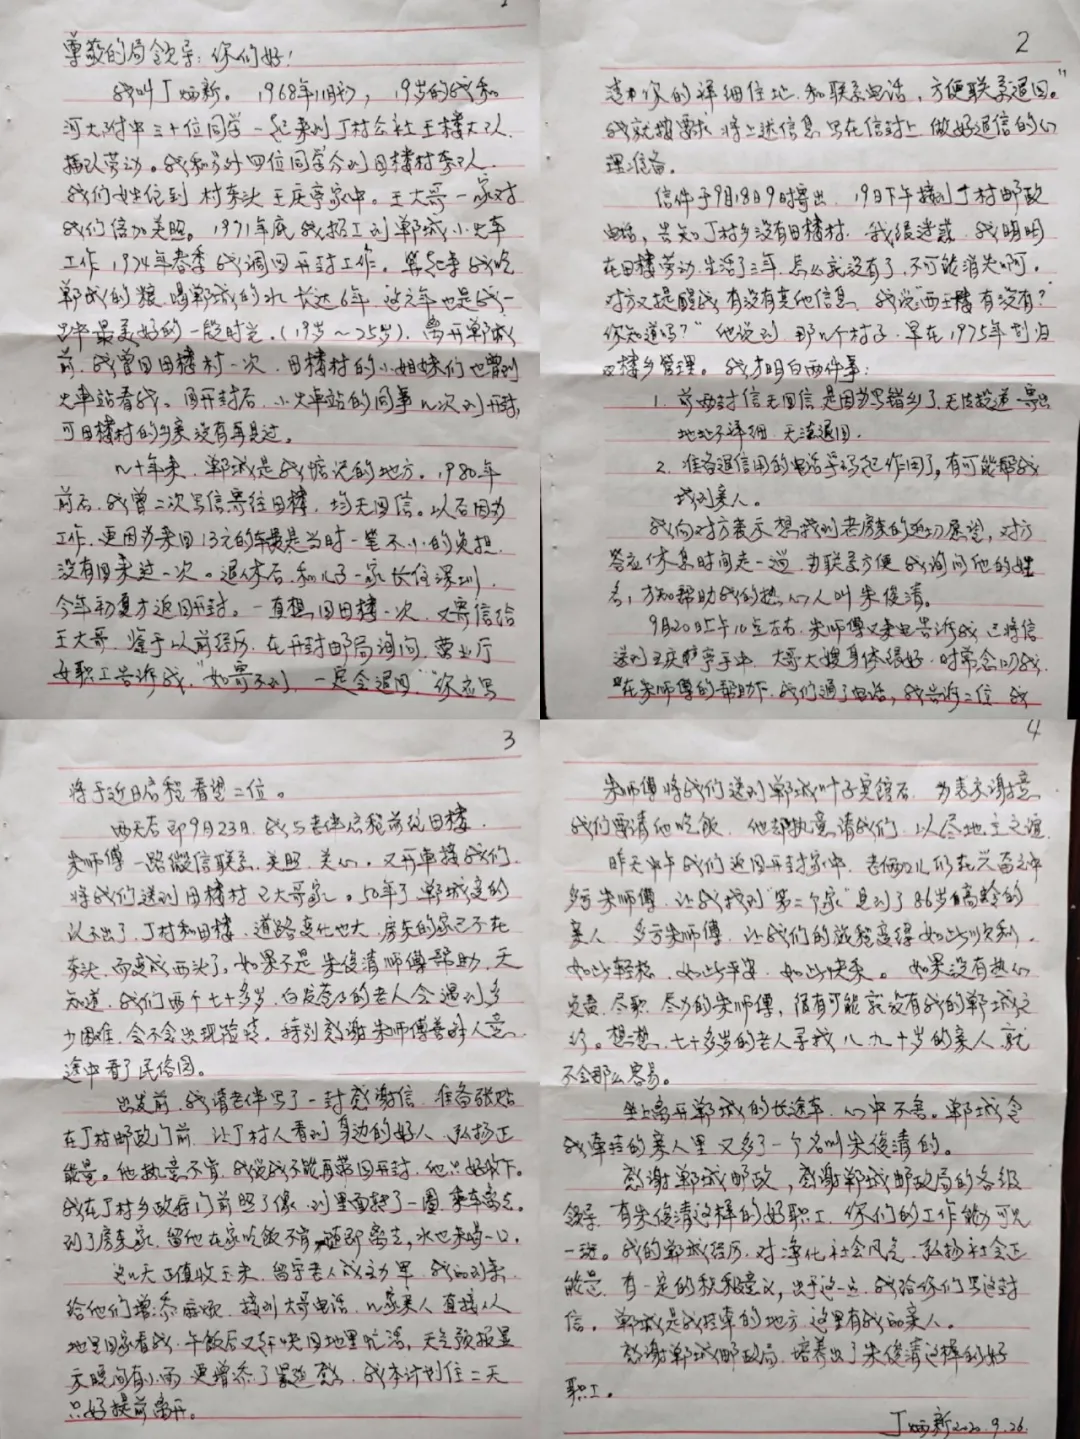 1
尊敬的局领导:你们好!
我叫丁炳新。1968年11月初,19岁的我和
河大附中三十位同学一起来到丁村公社王楼大队
插队劳动。我和另外四位同学分到田楼村东队
我们女生住到村东头王庆亭家中。王大哥一家对
我们倍加关照。1971年底我招工到郸城小火车
工作,1974年春季我调回开封工作。算起来我吃
郸城的粮喝郸城的水长达6年,这六年也是我一
生中最美好的一段时光。(19岁~25岁)。离开郸城
前,我曾回田楼村一次,田楼村的小姐妹们也曾到
火车站看我。回开封后,小火车站的同事几次到开封,
可田楼村的乡亲没有再见过。
几十年来,郸城是我惦记的地方。1980年
前后,我曾二次写信寄往田楼,均无回信。以后因为
工作,更因为来回13元的车费是当时一笔不小的负担,
没有回来过一次。退休后,和儿子一家长住深圳,
今年初夏才返回开封。一直想回田楼一次,又寄信给
王大哥,鉴于以前经历,在开封邮局询问,营业厅
女职工告诉我,"如寄不到,一定会退回",你应写
2
清楚你的详细住地和联系电话,方便联系退回。"
我就按要求将上述信息写在信封上做好退信的心
理准备。
信件于9月18日9时寄出,19日下午接到丁村邮政
电话,告知丁村乡没有田楼村,我很迷惑,我明明
在田楼劳动、生活了三年,怎么就没有了,不可能消失啊。
对方又提醒我有没有其他信息,我说"西王楼有没有?
你知道吗?"他说到那几个村子,早在1975年划归
双楼乡管理。我才明白两件事:
1. 前两封信无回信是因为写错乡了,无法投递,寄出
地址不详细,无法退回。
2. 准备退信用的电话号码起作用了,有可能帮我
找到亲人。
我向对方表示想找到老房东的迫切愿望,对方
答应休息时间走一趟,为联系方便我询问他的姓
名,方知帮助我的热心人叫朱俊清。
9月20日上午10点左右,朱师傅又来电告诉我已将信
送到王庆亭手中,大哥大嫂身体很好,时常念叨我,
在朱师傅的帮助下,我们通了电话,我告诉二位我
3
将于近日启程看望二位。
两天后即9月23日,我与老伴启程前往田楼,
朱师傅一路微信联系,关照、关心,又开车接我们,
将我们送到田楼村王大哥家。50年了郸城变的
认不出了,丁村和田楼,道路变化也大,房东的家已不在
东头,而变成西头了,如果不是朱俊清师傅帮助,天
知道,我们两个七十多岁,白发苍苍的老人会遇到多
少困难,会不会出现险境,特别感谢朱师傅善解人意,
途中看了民俗园。
出发前,我请老伴写了一封感谢信,准备张贴
在丁村邮政门前,让丁村人看到身边的好人,弘扬正
能量。他执意不肯,我说我不能再带回开封,他只好收下。
我在丁村乡政府门前照了像,到里面转了一圈,乘车离去。
到了房东家,留他在家吃饭不肯,随即离去,水也未喝一口。
这几天正值收玉米,留守老人成主力军,我的到来
给他们增添麻烦,接到大哥电话,几家亲人直接从
地里回家看我,午饭后又赶快回地里忙活,天气预报显
示晚间有小雨更增添了紧迫感,我本计划住二天
只好提前离开。
4
朱师傅将我们送到郸城叶子宾馆后,为表示谢意
我们要请他吃饭,他却执意请我们,以尽地主之谊。
昨天中午我们返回开封家中,老俩口儿仍在兴奋之中
多亏朱师傅,让我找到"第二个家"见到了86岁高龄的
亲人,多亏朱师傅,让我们的旅程变得如此顺利、
如此轻松、如此平安、如此快乐。如果没有热心
负责、尽职、尽力的朱师傅,很有可能就没有我的郸城之
行。想想,七十多岁的老人寻找八九十岁的亲人就
不会那么容易。
坐上离开郸城的长途车,心中不舍。郸城令
我牵挂的亲人里又多了一个名叫朱俊清的。
感谢郸城邮政,感谢郸城邮政局的各级
领导,有朱俊清这样的好职工,你们的工作能力可见
一斑。我的郸城经历,对净化社会风气,弘扬社会正
能量,有一定的积极意义,出于这一点,我给你们写这封
信。郸城是我牵挂的地方,这里有我的亲人。
感谢郸城邮政局,培养出了朱俊清这样的好
职工。
丁炳新2020.9.26.